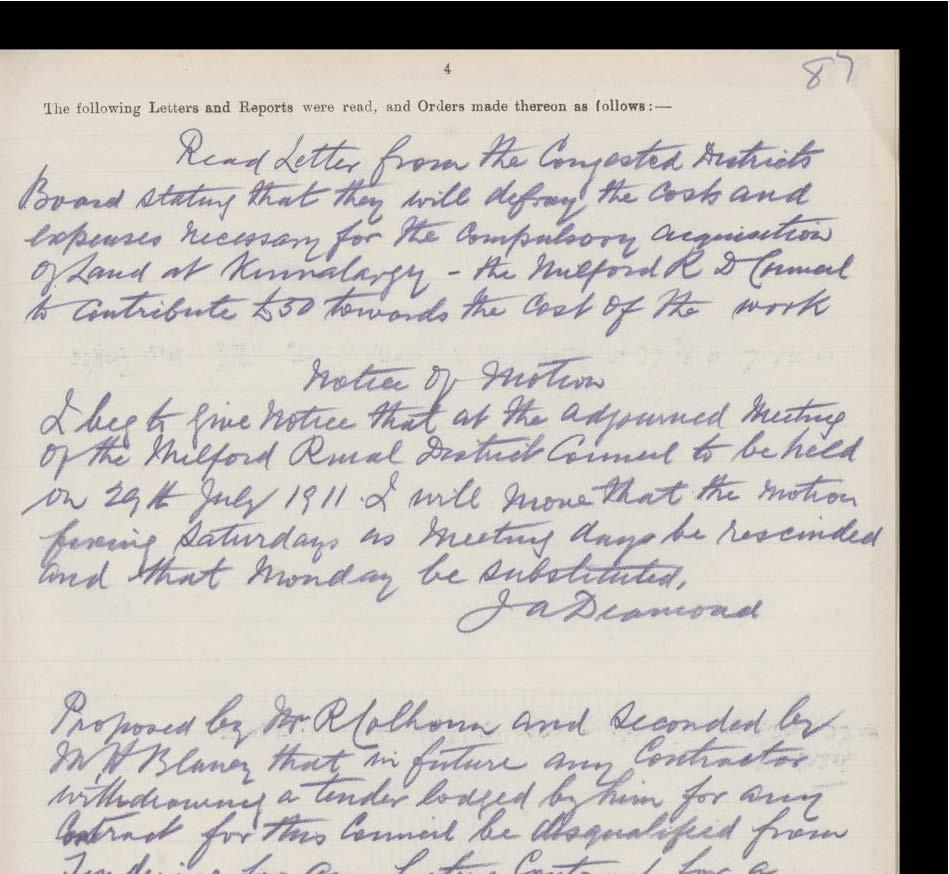 4
87
The following Letters and Reports were read, and Orders made thereon as follows:—
Read Letter from the Congested Districts
Board stating that they will defray the costs and
expenses necessary for the Compulsory acquisition
of Land at Kinnalargy - the Milford R D Council
to Contribute £50 towards the Cost of the work
Notice Of Motion
I beg to give Notice that at the adjourned Meeting
Of the Milford Rural District Council to be held
on 29th July 1911 I will move that the motion
fixing Saturdays as Meeting days be rescinded
and that Monday be substituted,
J A Diamond
Proposed by Mr. R Colhoun and seconded by
Mr H Blaney that in future any Contractor
withdrawing a tender lodged by him for any
Contract for this Council be disqualified from
Tendering for any future Contract for a